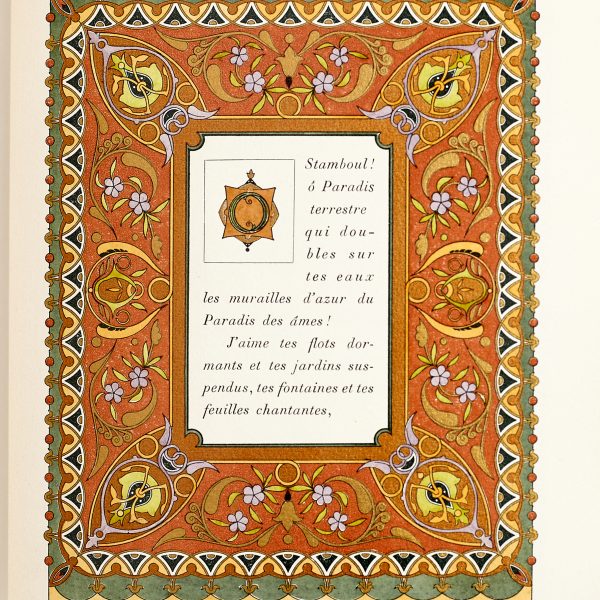 O Stamboul !
ô Paradis
terrestre
qui dou-
bles sur
tes eaux
les murailles d'azur du
Paradis des âmes !
J'aime tes flots dor-
mants et tes jardins sus-
pendus, tes fontaines et tes
feuilles chantantes,